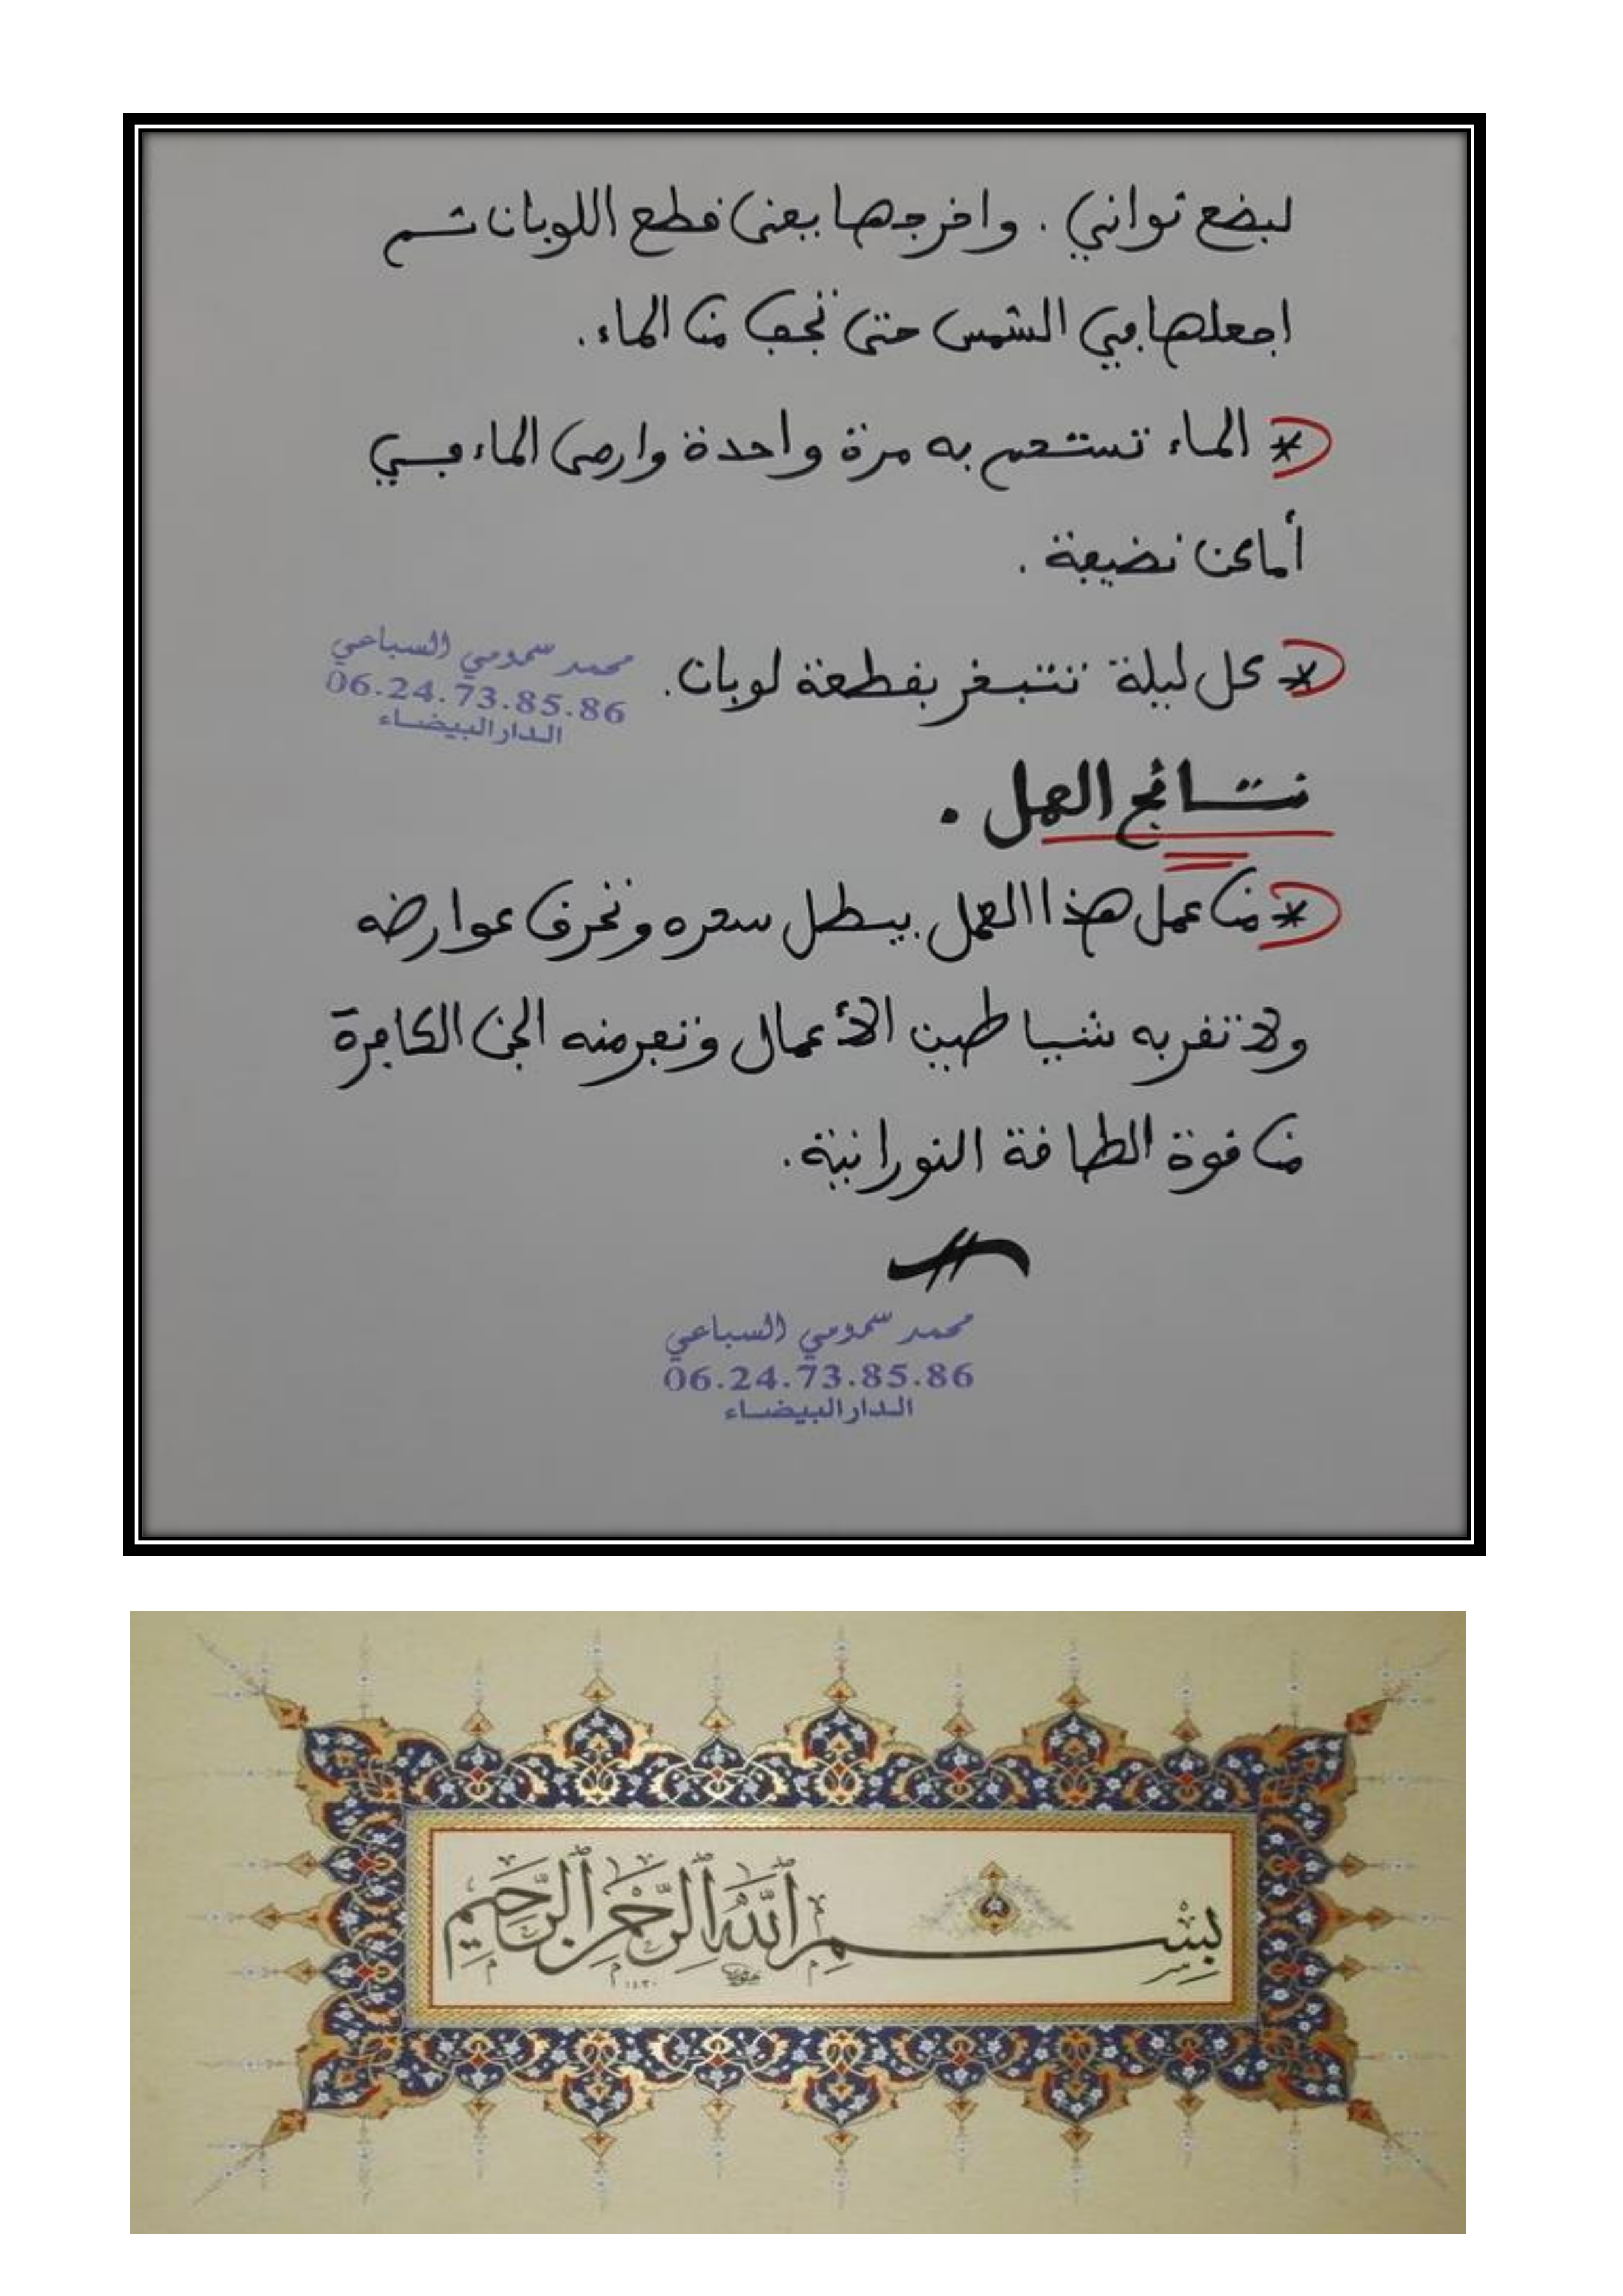 لبضع ثواني . واخرجها يعني قطع اللوبان ثم
اجعلها في الشمس حتى تجف من الماء .
* الماء تستحم به مرة واحدة وارمى الماء في
أماكن نضيفة .
* كل ليلة تتبخر بقطعة لوبان .
محمد سمومي السباعي
06.24.73.85.86
الدار البيضاء
نتائج العمل .
* من عمل هذا العمل يبطل سحره وتحرق عوارضه
ولا تقربه شياطين الأعمال وتفر منه الجن الكافرة
من قوة الطاقة النورانية .
محمد سمومي السباعي
06.24.73.85.86
الدار البيضاء
بسم الله الرحمن الرحيم
١٤٣٠